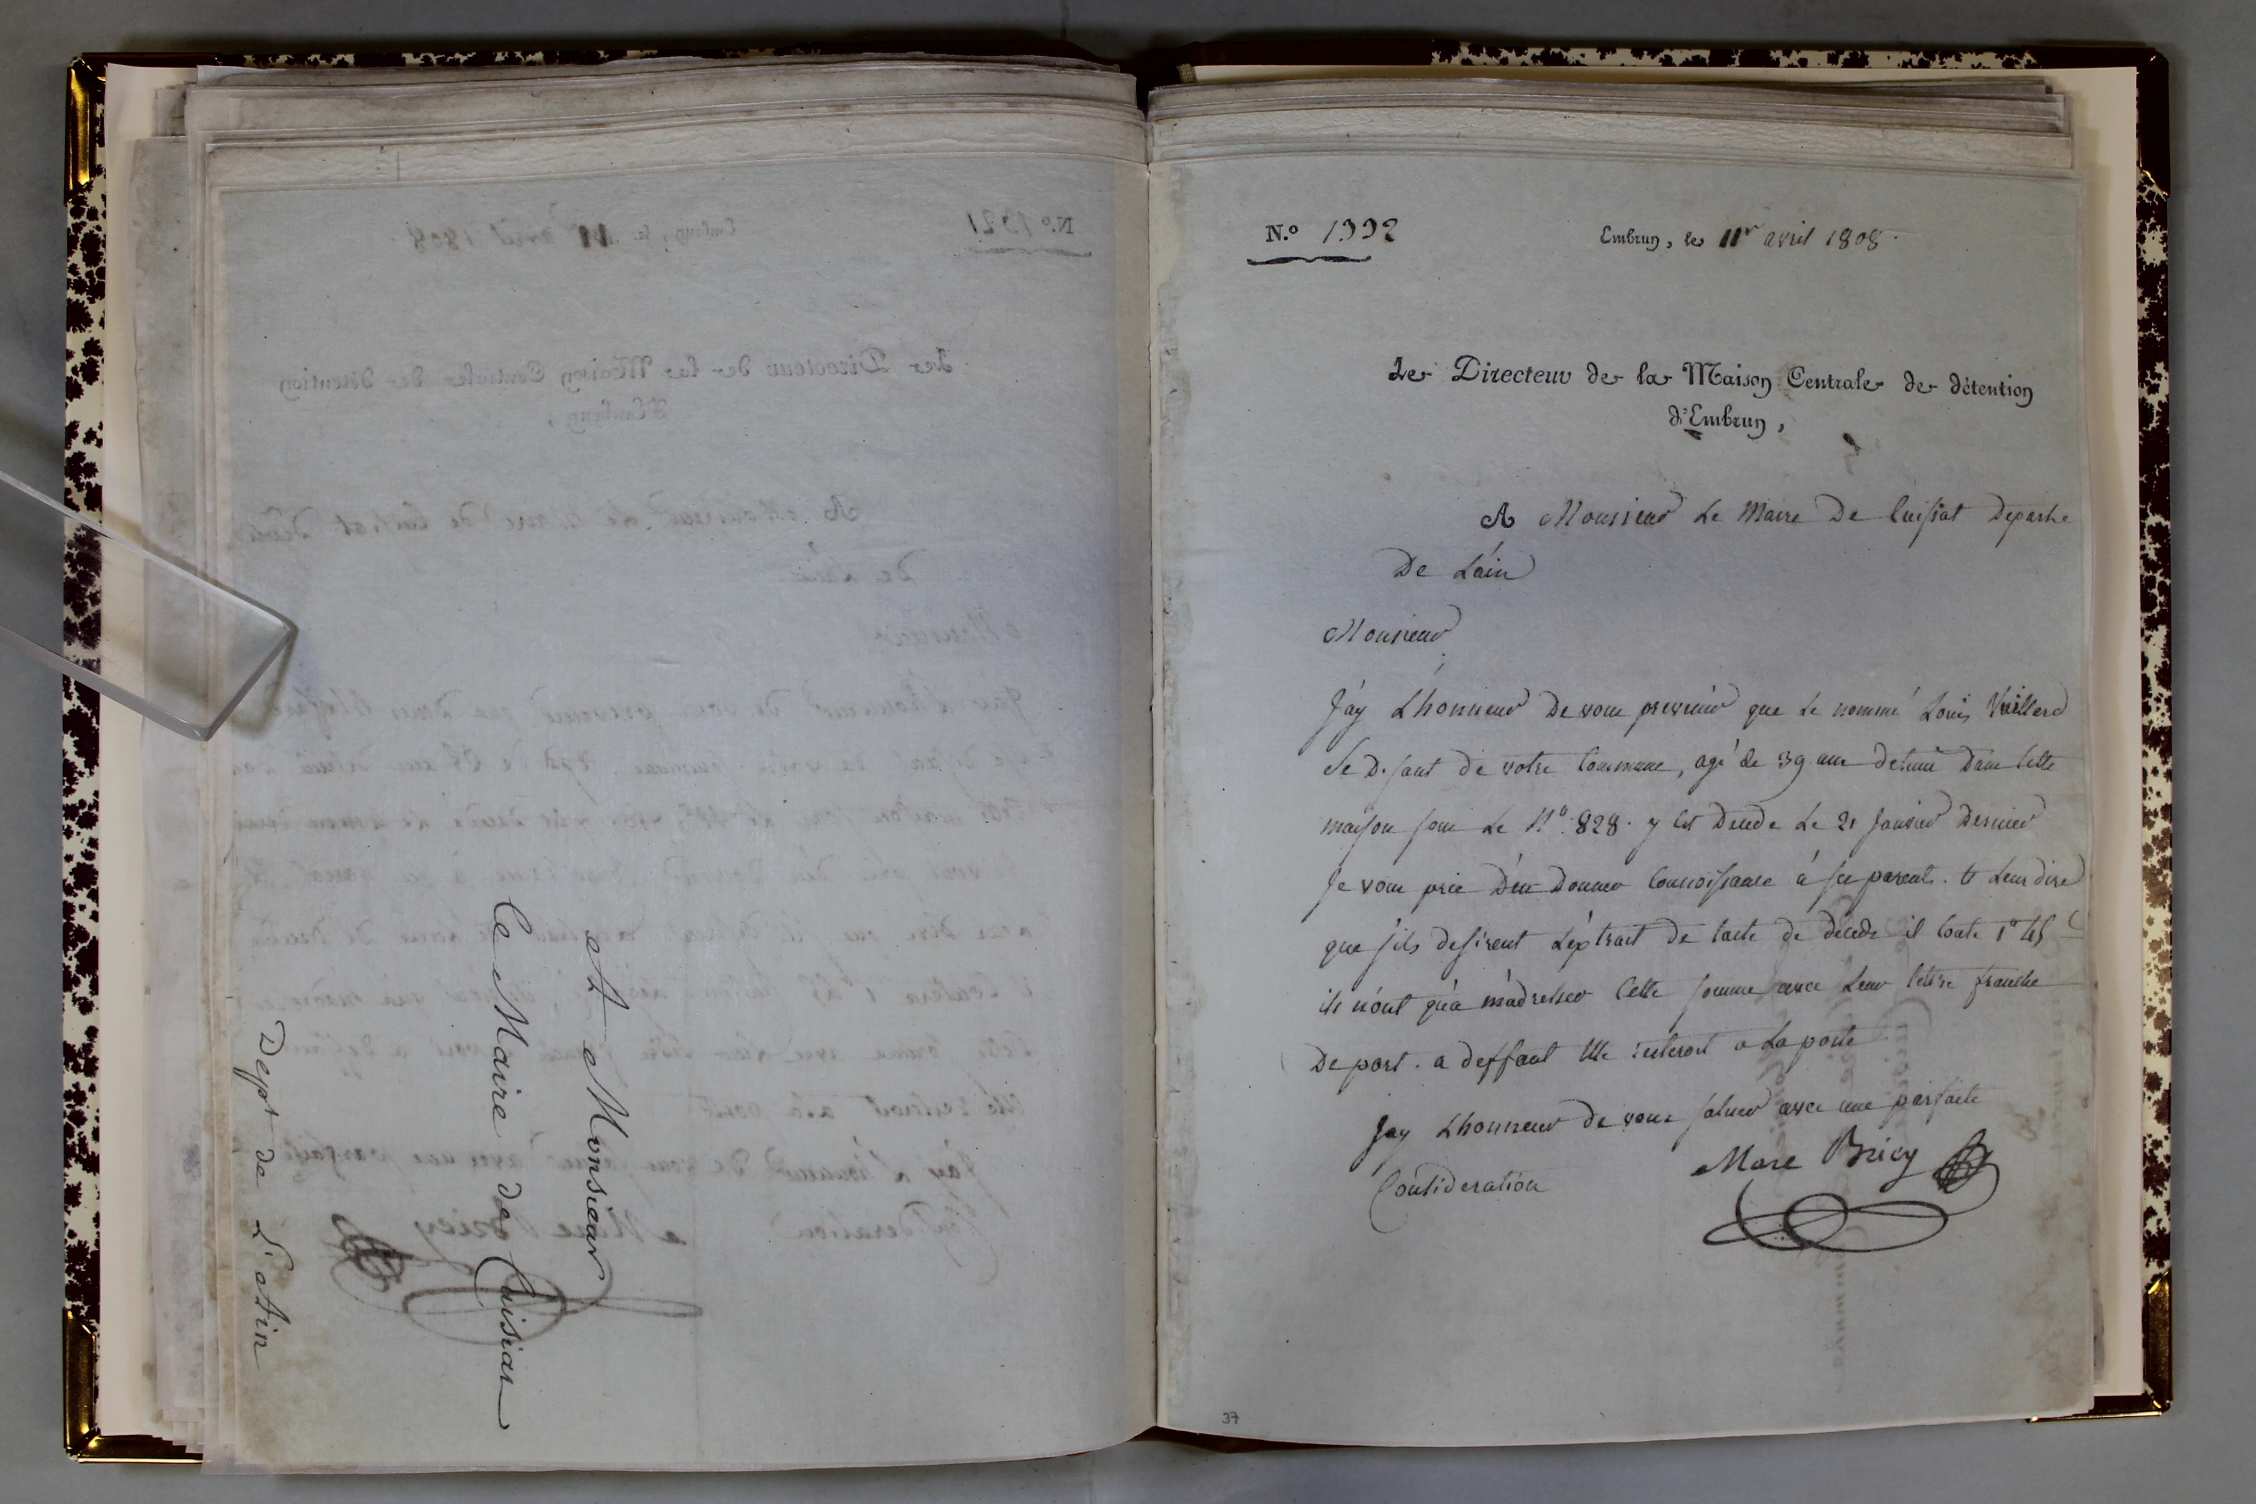 A Monsieur
Le Maire de Cuisiat
Dept de L'Ain
N.o 1332
Embrun, le 11r avril 1808.
Le Directeur de la Maison Centrale de détention
d'Embrun,
A Monsieur Le Maire De Cuissat Departe
De L'ain
Monsieur
J'ay L'honneur De vous prevenir que Le nommé Louis Vuillerd
Se Disant de votre Commune, agé de 39 ans detenu Dans Cette
maison sous Le No. 828. y est Decede Le 21 Janvier Dernier
Je vous prie D'en Donner Connoissance á ses parents. et Leur dire
que s'ils desirent L'extrait de l'acte de décede il Coute 1
ils n'ont qu'a m'adresser Cette somme avec Leur Lettre franche
De port. a deffaut Elle resteroit a La poste
Jay L'honneur de vous saluer avec une parfaite
Consideration
Marc Bricy
37